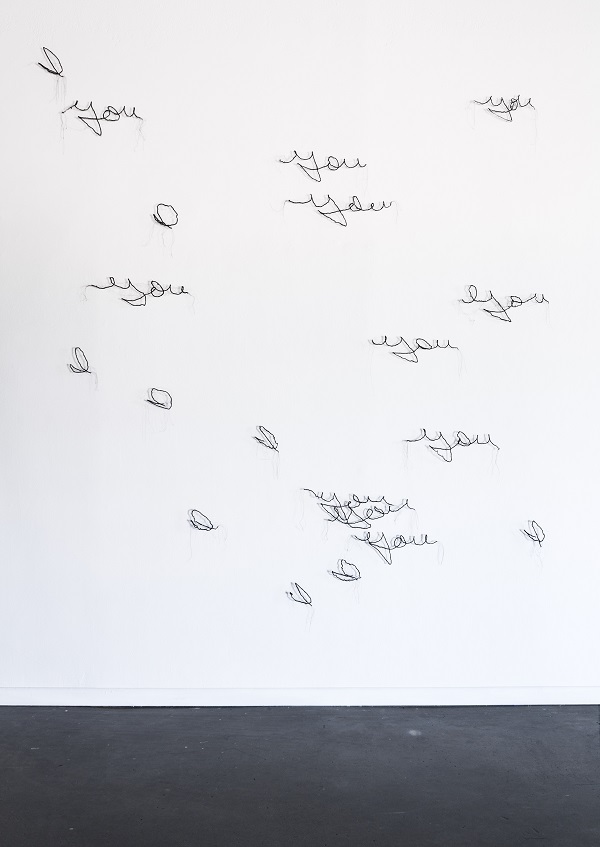 I
you
you
you
you
I
you
you
you
I
I
I
you
you
you
I
I
you
I
I